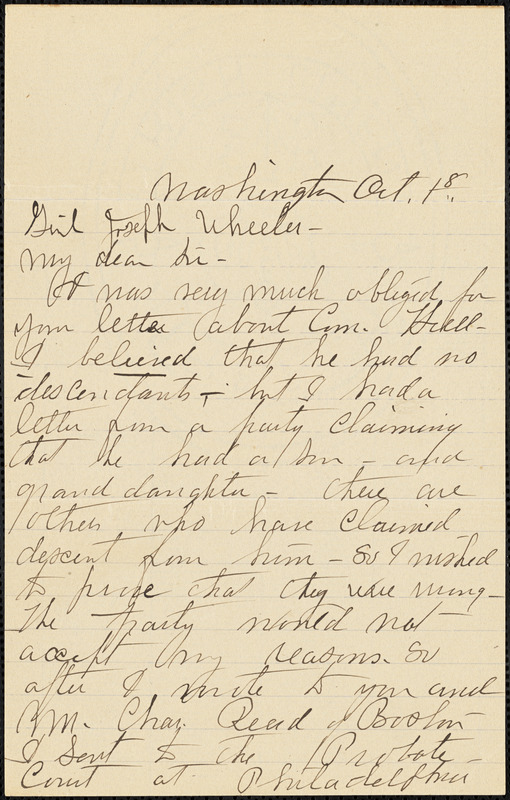 Washington Oct. 18.
Genl Joseph Wheeler -
My dear Sir -
I was very much obliged for
your letter about Com. Hull -
I believed that he had no
descendants - but I had a
letter from a party claiming
that he had a son - and
grand daughter - there are
others who have claimed
descent from him - So I wished
to prove that they were wrong -
The party would not
accept my reasons. So
after I wrote to you and
Mr. Chas. Read of Boston
I sent to the Probate
Court at Philadelphia